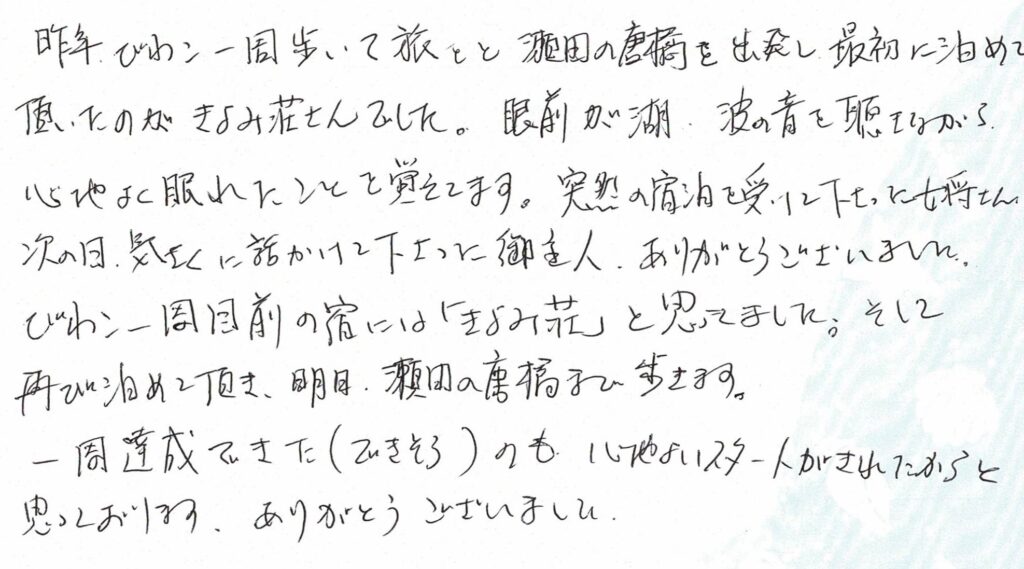 昨年、びわこ一周歩いて旅をと 瀬田の唐橋を出発し 最初に泊めて
頂いたのが きよみ荘さんでした。眼前が湖、波の音を聴きながら
心地よく眠れたことを覚えてます。突然の宿泊を受けて下さった女将さん
次の日、気さくに話かけて下さった御主人、ありがとうございました。
びわこ一周目前の宿には「きよみ荘」と思ってました。そして
再び泊めて頂き、明日、瀬田の唐橋まで歩きます。
一周達成できた(できそう)のも 心地よいスタートがきれたからと
思っております、ありがとうございました。